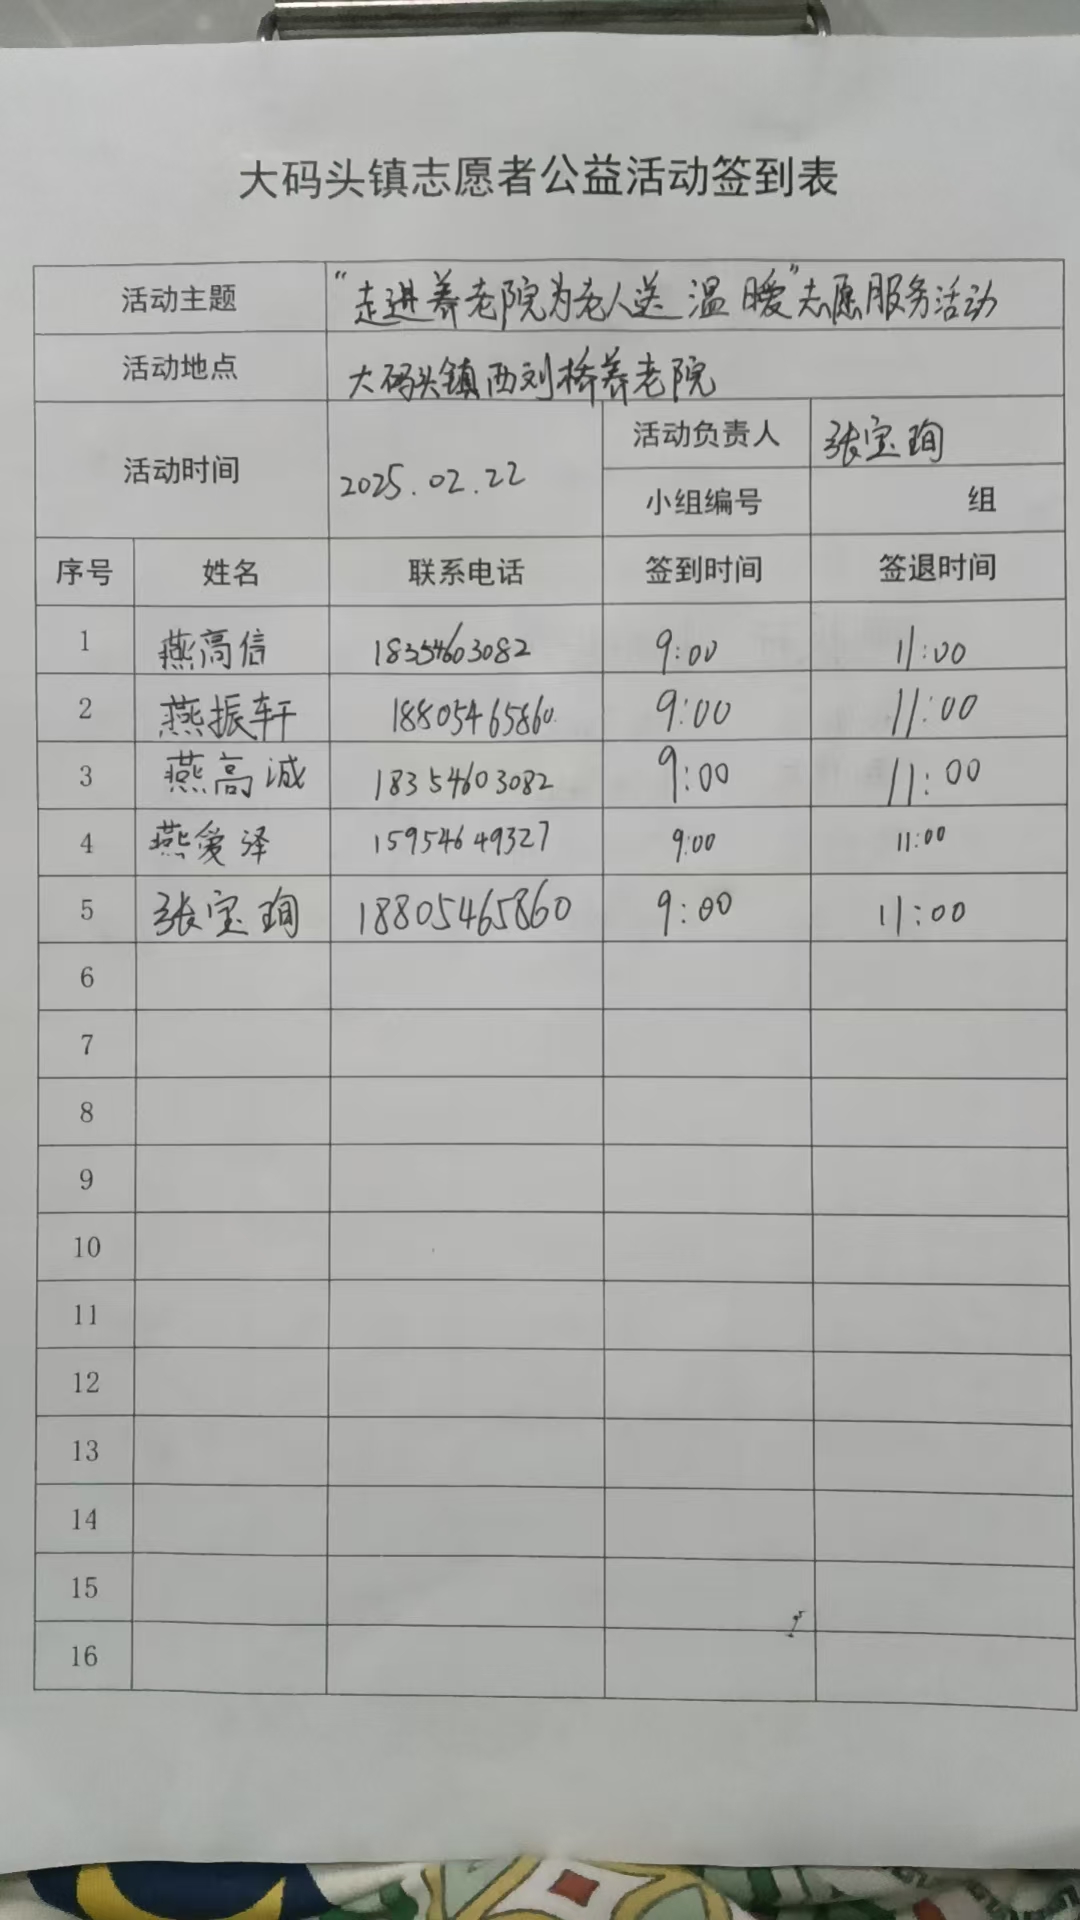 大码头镇志愿者公益活动签到表
活动主题 “走进养老院为老人送温暖”志愿服务活动
活动地点 大码头镇西刘桥养老院
活动时间 2025.02.22 活动负责人 张宝珣
小组编号 组
序号 姓名 联系电话 签到时间 签退时间
1 燕高信 18354603082 9:00 11:00
2 燕振轩 18805465860 9:00 11:00
3 燕高诚 18354603082 9:00 11:00
4 燕爱泽 15954649327 9:00 11:00
5 张宝珣 18805465860 9:00 11:00
6
7
8
9
10
11
12
13
14
15
16